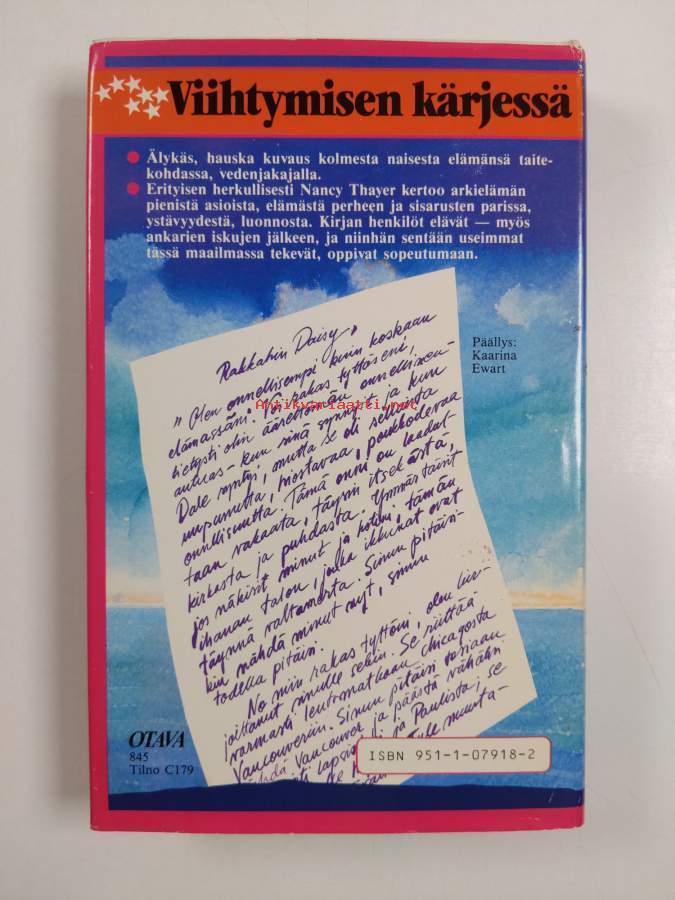 Viihtymisen kärjessä
Älykäs, hauska kuvaus kolmesta naisesta elämänsä taite-
kohdassa, vedenjakajalla.
Erityisen herkullisesti Nancy Thayer kertoo arkielämän
pienistä asioista, elämästä perheen ja sisarusten parissa,
ystävyydestä, luonnosta. Kirjan henkilöt elävät — myös
ankarien iskujen jälkeen, ja niinhän sentään useimmat
tässä maailmassa tekevät, oppivat sopeutumaan.
Päällys:
Kaarina
Ewart
Rakkahin Daisy,
"Olen onnellisempi kuin koskaan
elämässäni. Voi rakas tyttöseni,
tietysti olin äärettömän onnellinen
autuas – kun sinä synnyit ja kun
Dale syntyi, mutta se oli sellaista
uupunutta, hoitavaa, poukkoilevaa
onnellisuutta. Tämä onni on laadul-
taan vakaata, täynnä itseästä,
kirkasta ja puhdasta. Ymmärtäisit
jos näkisit minut ja kotini, tämän
ihanan talon, jonka ikkunat ovat
täynnä valtamerta. Sinun pitäisi-
kin nähdä minut nyt, sinun
todella pitäisi.
No min rakas tyttöni, olen kir-
joittanut sinulle sekin. Se riittää
varmasti lentomatkaan Chicagosta
Vancouveriin. Sinun pitäisi tosiaan
nähdä Vancouver ja päästä vähähn
lapsi ja Paulista, se
muutta-
Antikvariaatti.net
OTAVA
845
Tilno C179
ISBN 951-1-07918-2